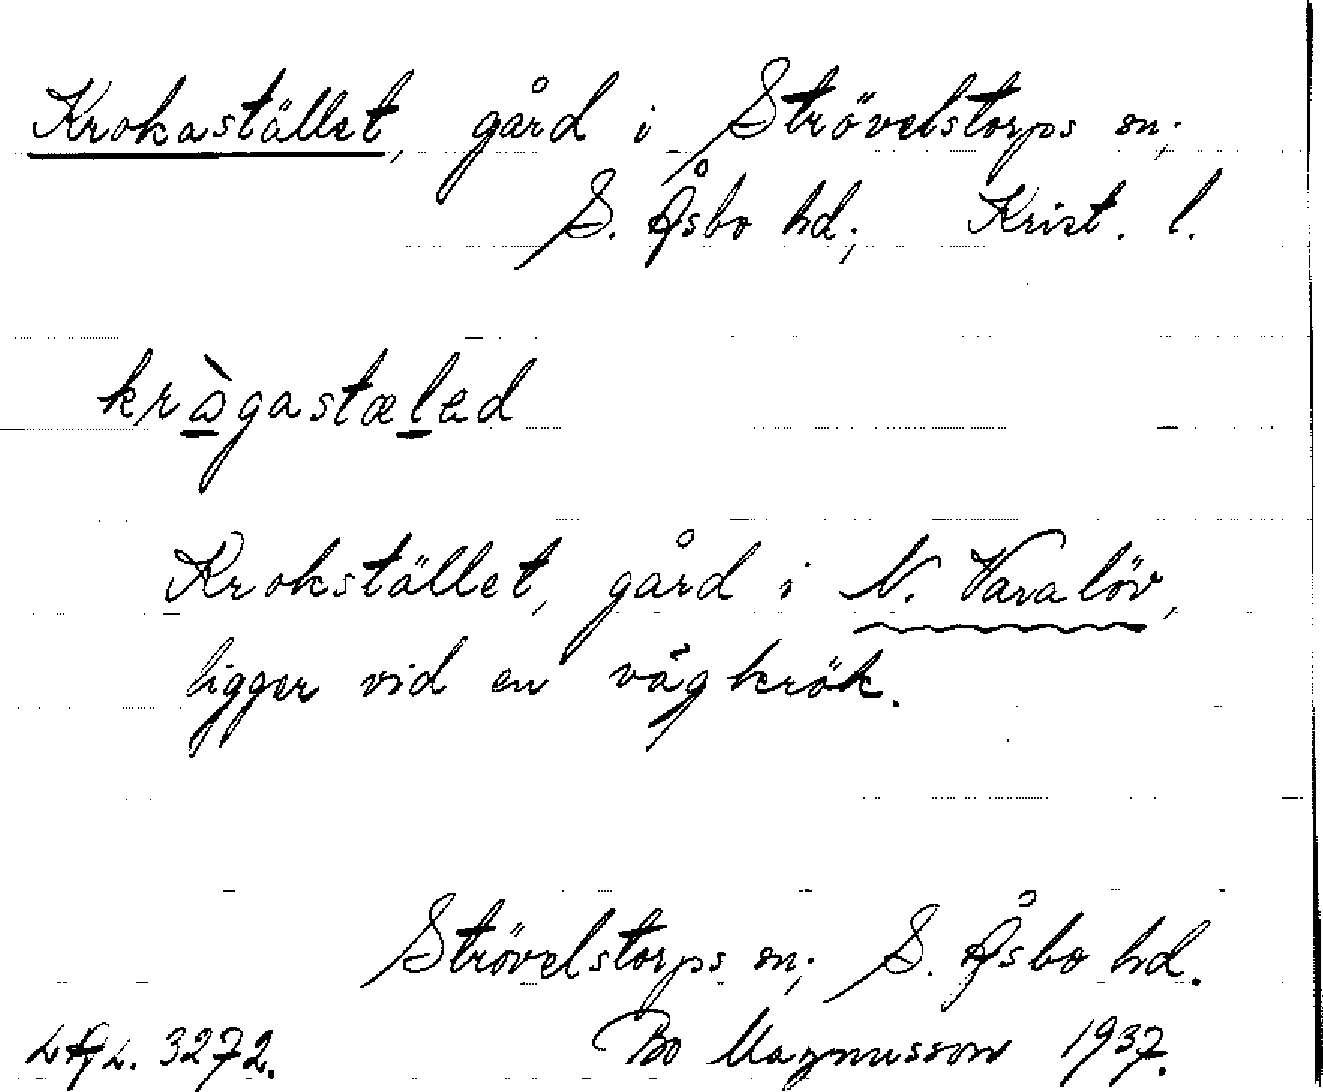 Krokastället, gård i Strövelstorps sn;
S. Åsbo hd; Krist. l.
kràgastæled
Krokstället, gård i N. Varalöv,
ligger vid en vägkrök.
Strövelstorps sn; S. Åsbo hd.
3272. Bo Magnusson 1937.